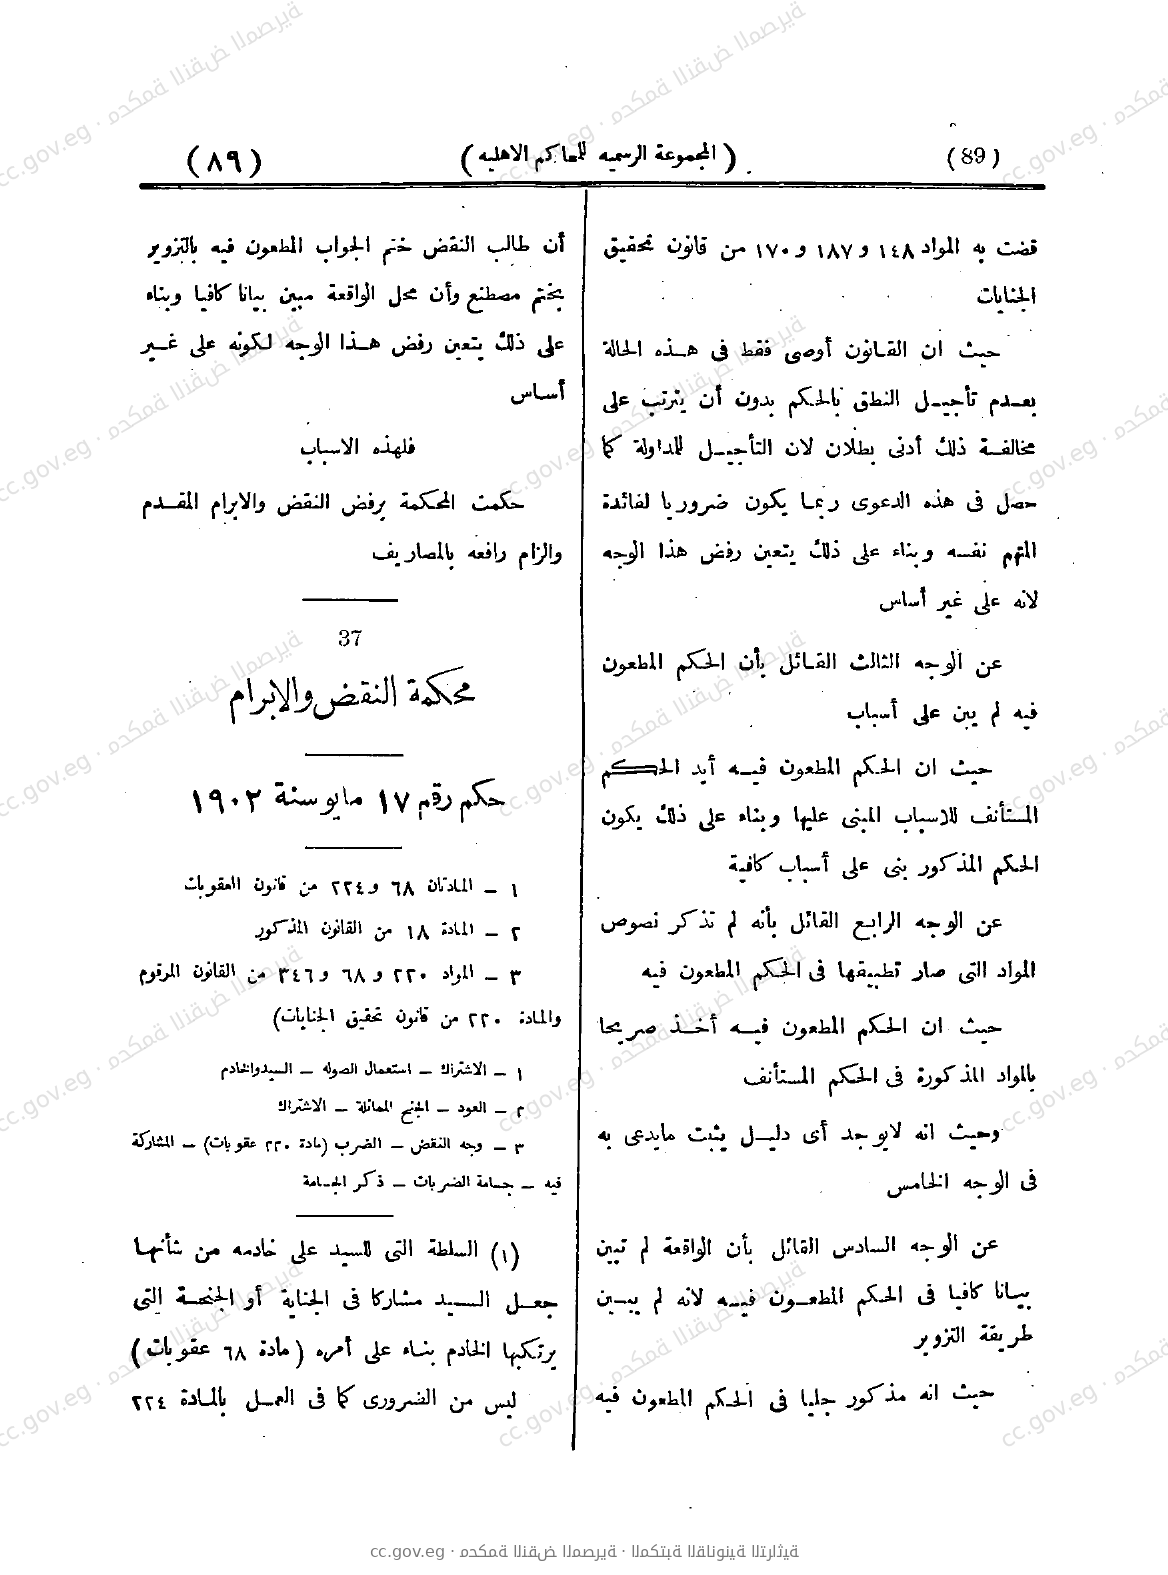 (89) (المجموعة الرسميه للمحاكم الاهليه) (٨٩)
قضت به المواد ١٤٨ و ١٨٧ و ١٧٠ من قانون تحقيق
الجنايات
حيث ان القانون أوصى فقط فى هذه الحالة
بعدم تأجيل النطق بالحكم بدون أن يترتب على
مخالفة ذلك أدنى بطلان لان التأجيل للمداولة كما
حصل فى هذه الدعوى ربما يكون ضروريا لفائدة
المتهم نفسه وبناء على ذلك يتعين رفض هذا الوجه
لانه على غير أساس
عن الوجه الثالث القائل بأن الحكم المطعون
فيه لم يبن على أسباب
حيث ان الحكم المطعون فيه أيد الحكم
المستأنف للاسباب المبنى عليها وبناء على ذلك يكون
الحكم المذكور بنى على أسباب كافية
عن الوجه الرابع القائل بأنه لم تذكر نصوص
المواد التى صار تطبيقها فى الحكم المطعون فيه
حيث ان الحكم المطعون فيه أخذ صريحا
بالمواد المذكورة فى الحكم المستأنف
وحيث انه لايوجد أى دليل يثبت مايدعى به
فى الوجه الخامس
عن الوجه السادس القائل بأن الواقعة لم تبين
بيانا كافيا فى الحكم المطعون فيه لانه لم يبين
طريقة التزوير
حيث انه مذكور جليا فى الحكم المطعون فيه
أن طالب النقض ختم الجواب المطعون فيه بالتزوير
بختم مصطنع وأن محل الواقعة مبين بيانا كافيا وبناء
على ذلك يتعين رفض هذا الوجه لكونه على غير
أساس
فلهذه الاسباب
حكمت المحكمة برفض النقض والابرام المقدم
والزام رافعه بالمصاريف
37
محكمة النقض والابرام
حكم رقم ١٧ مايو سنة ١٩٠٢
١ – المادتان ٦٨ و ٢٢٤ من قانون العقوبات
٢ – المادة ١٨ من القانون المذكور
٣ – المواد ٢٢٠ و ٦٨ و ٣٤٦ من القانون المرقوم
والمادة ٢٢٠ من قانون تحقيق الجنايات)
١ – الاشتراك – استعمال الصوله – السيد والخادم
٢ – العود – الجنح المماثلة – الاشتراك
٣ – وجه النقض – الضرب (مادة ٢٢٠ عقوبات) – المشاركة
فيه – جسامة الضربات – ذكر الجسامة
(١) السلطة التى للسيد على خادمه من شأنها
جعل السيد مشاركا فى الجناية أو الجنحة التى
يرتكبها الخادم بناء على أمره (مادة ٦٨ عقوبات)
ليس من الضرورى كما فى العمل بالمادة ٢٢٤
cc.gov.eg · محكمة النقض المصرية · المكتبة القانونية التراثية